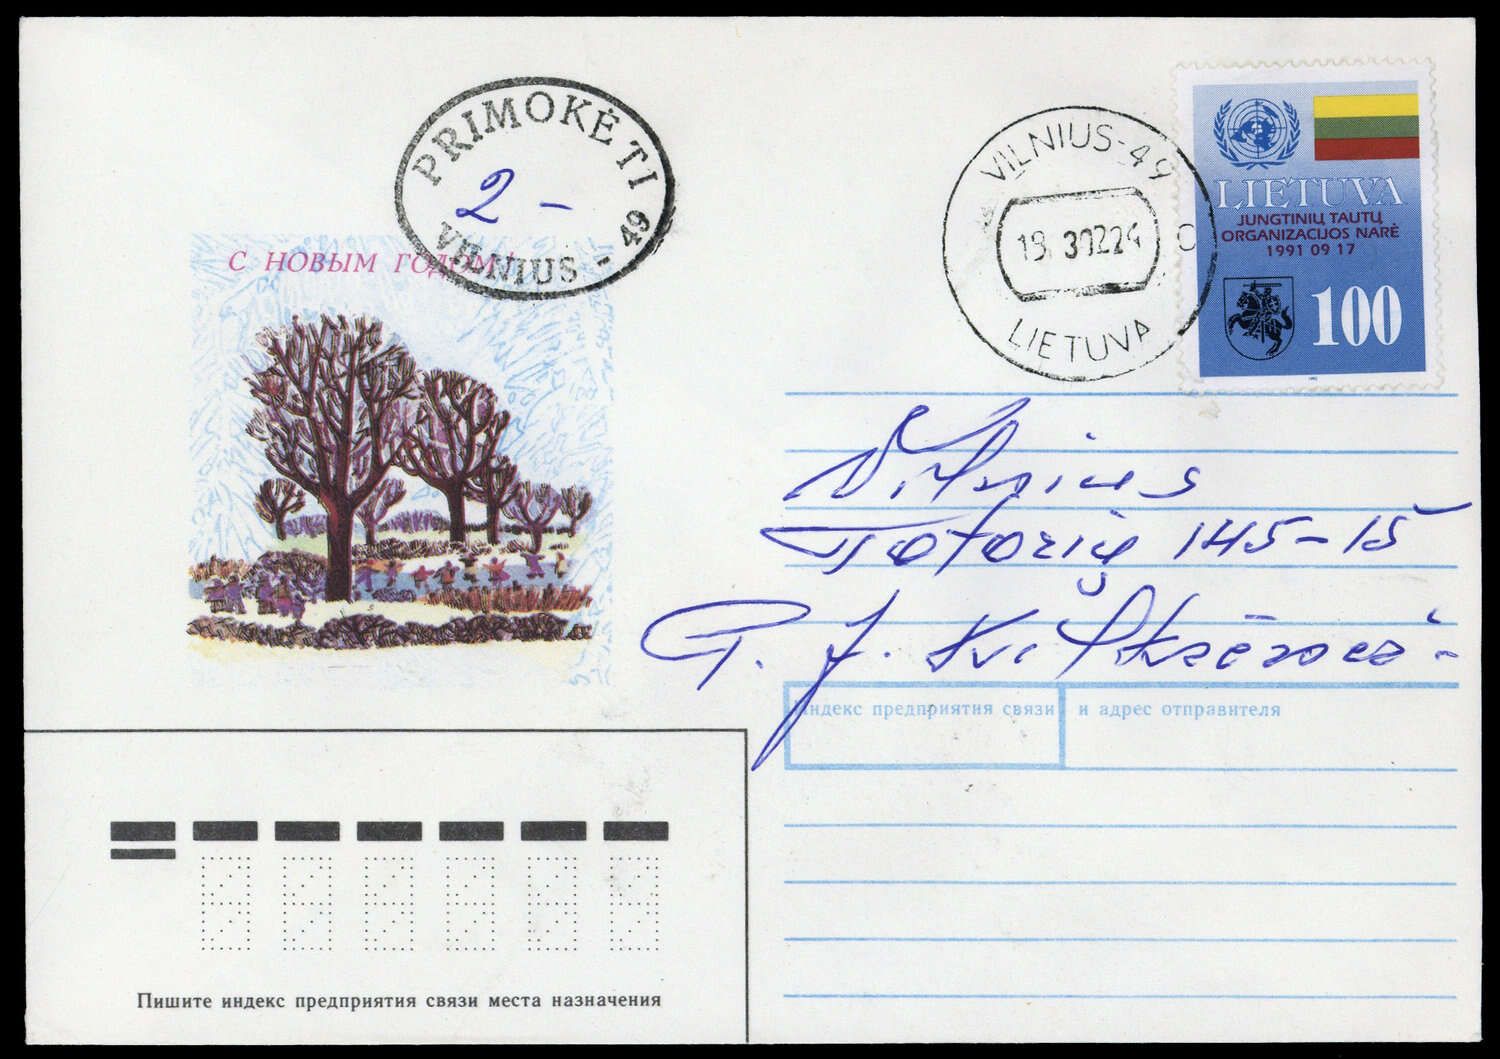 PRIMOKĖTI
2 –
VILNIUS - 49
С НОВЫМ ГОДОМ!
VILNIUS-49
LIETUVA
LIETUVA
JUNGTINIŲ TAUTŲ
ORGANIZACIJOS NARĖ
1991 09 17
100
Vilnius
Totorių
индекс предприятия связи и адрес отправителя
Пишите индекс предприятия связи места назначения